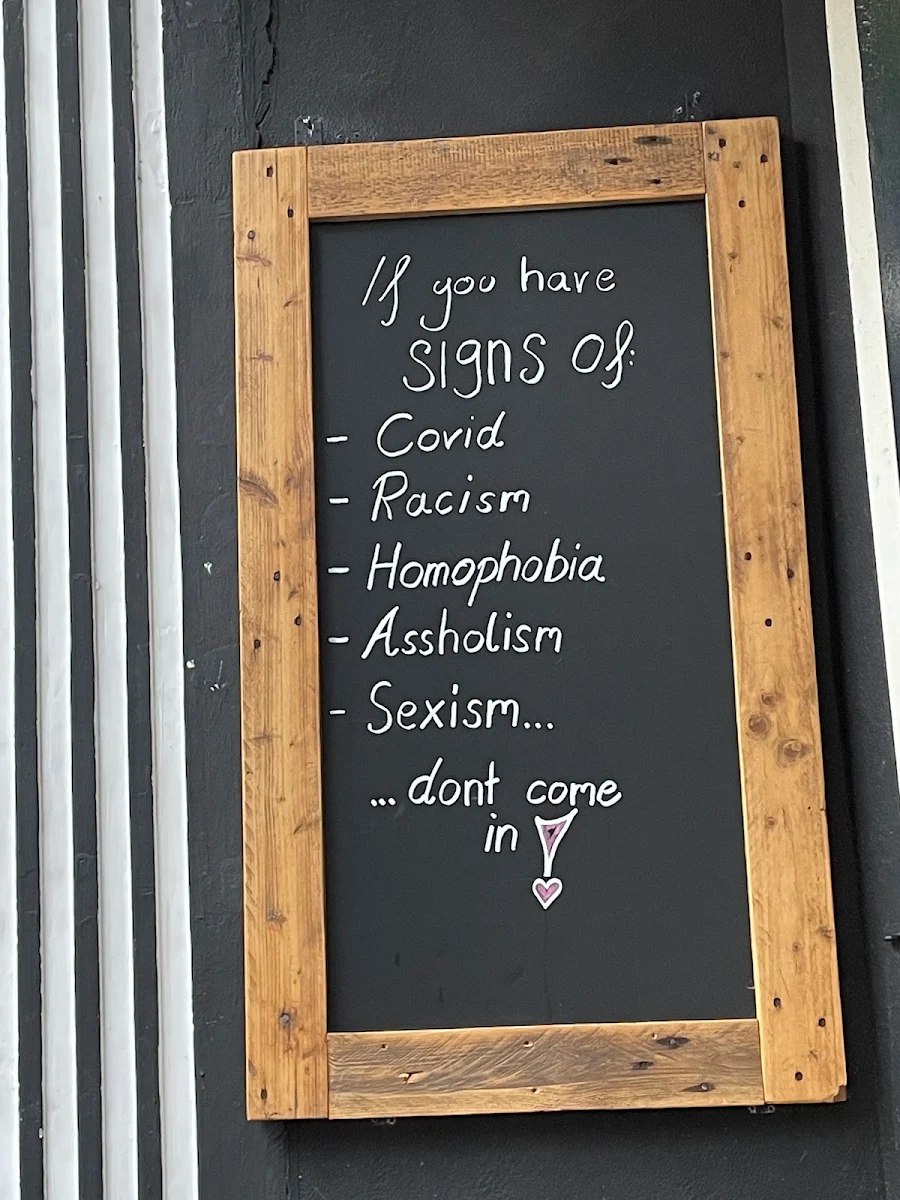 If you have
signs of:
- Covid
- Racism
- Homophobia
- Assholism
- Sexism...
...dont come
in!